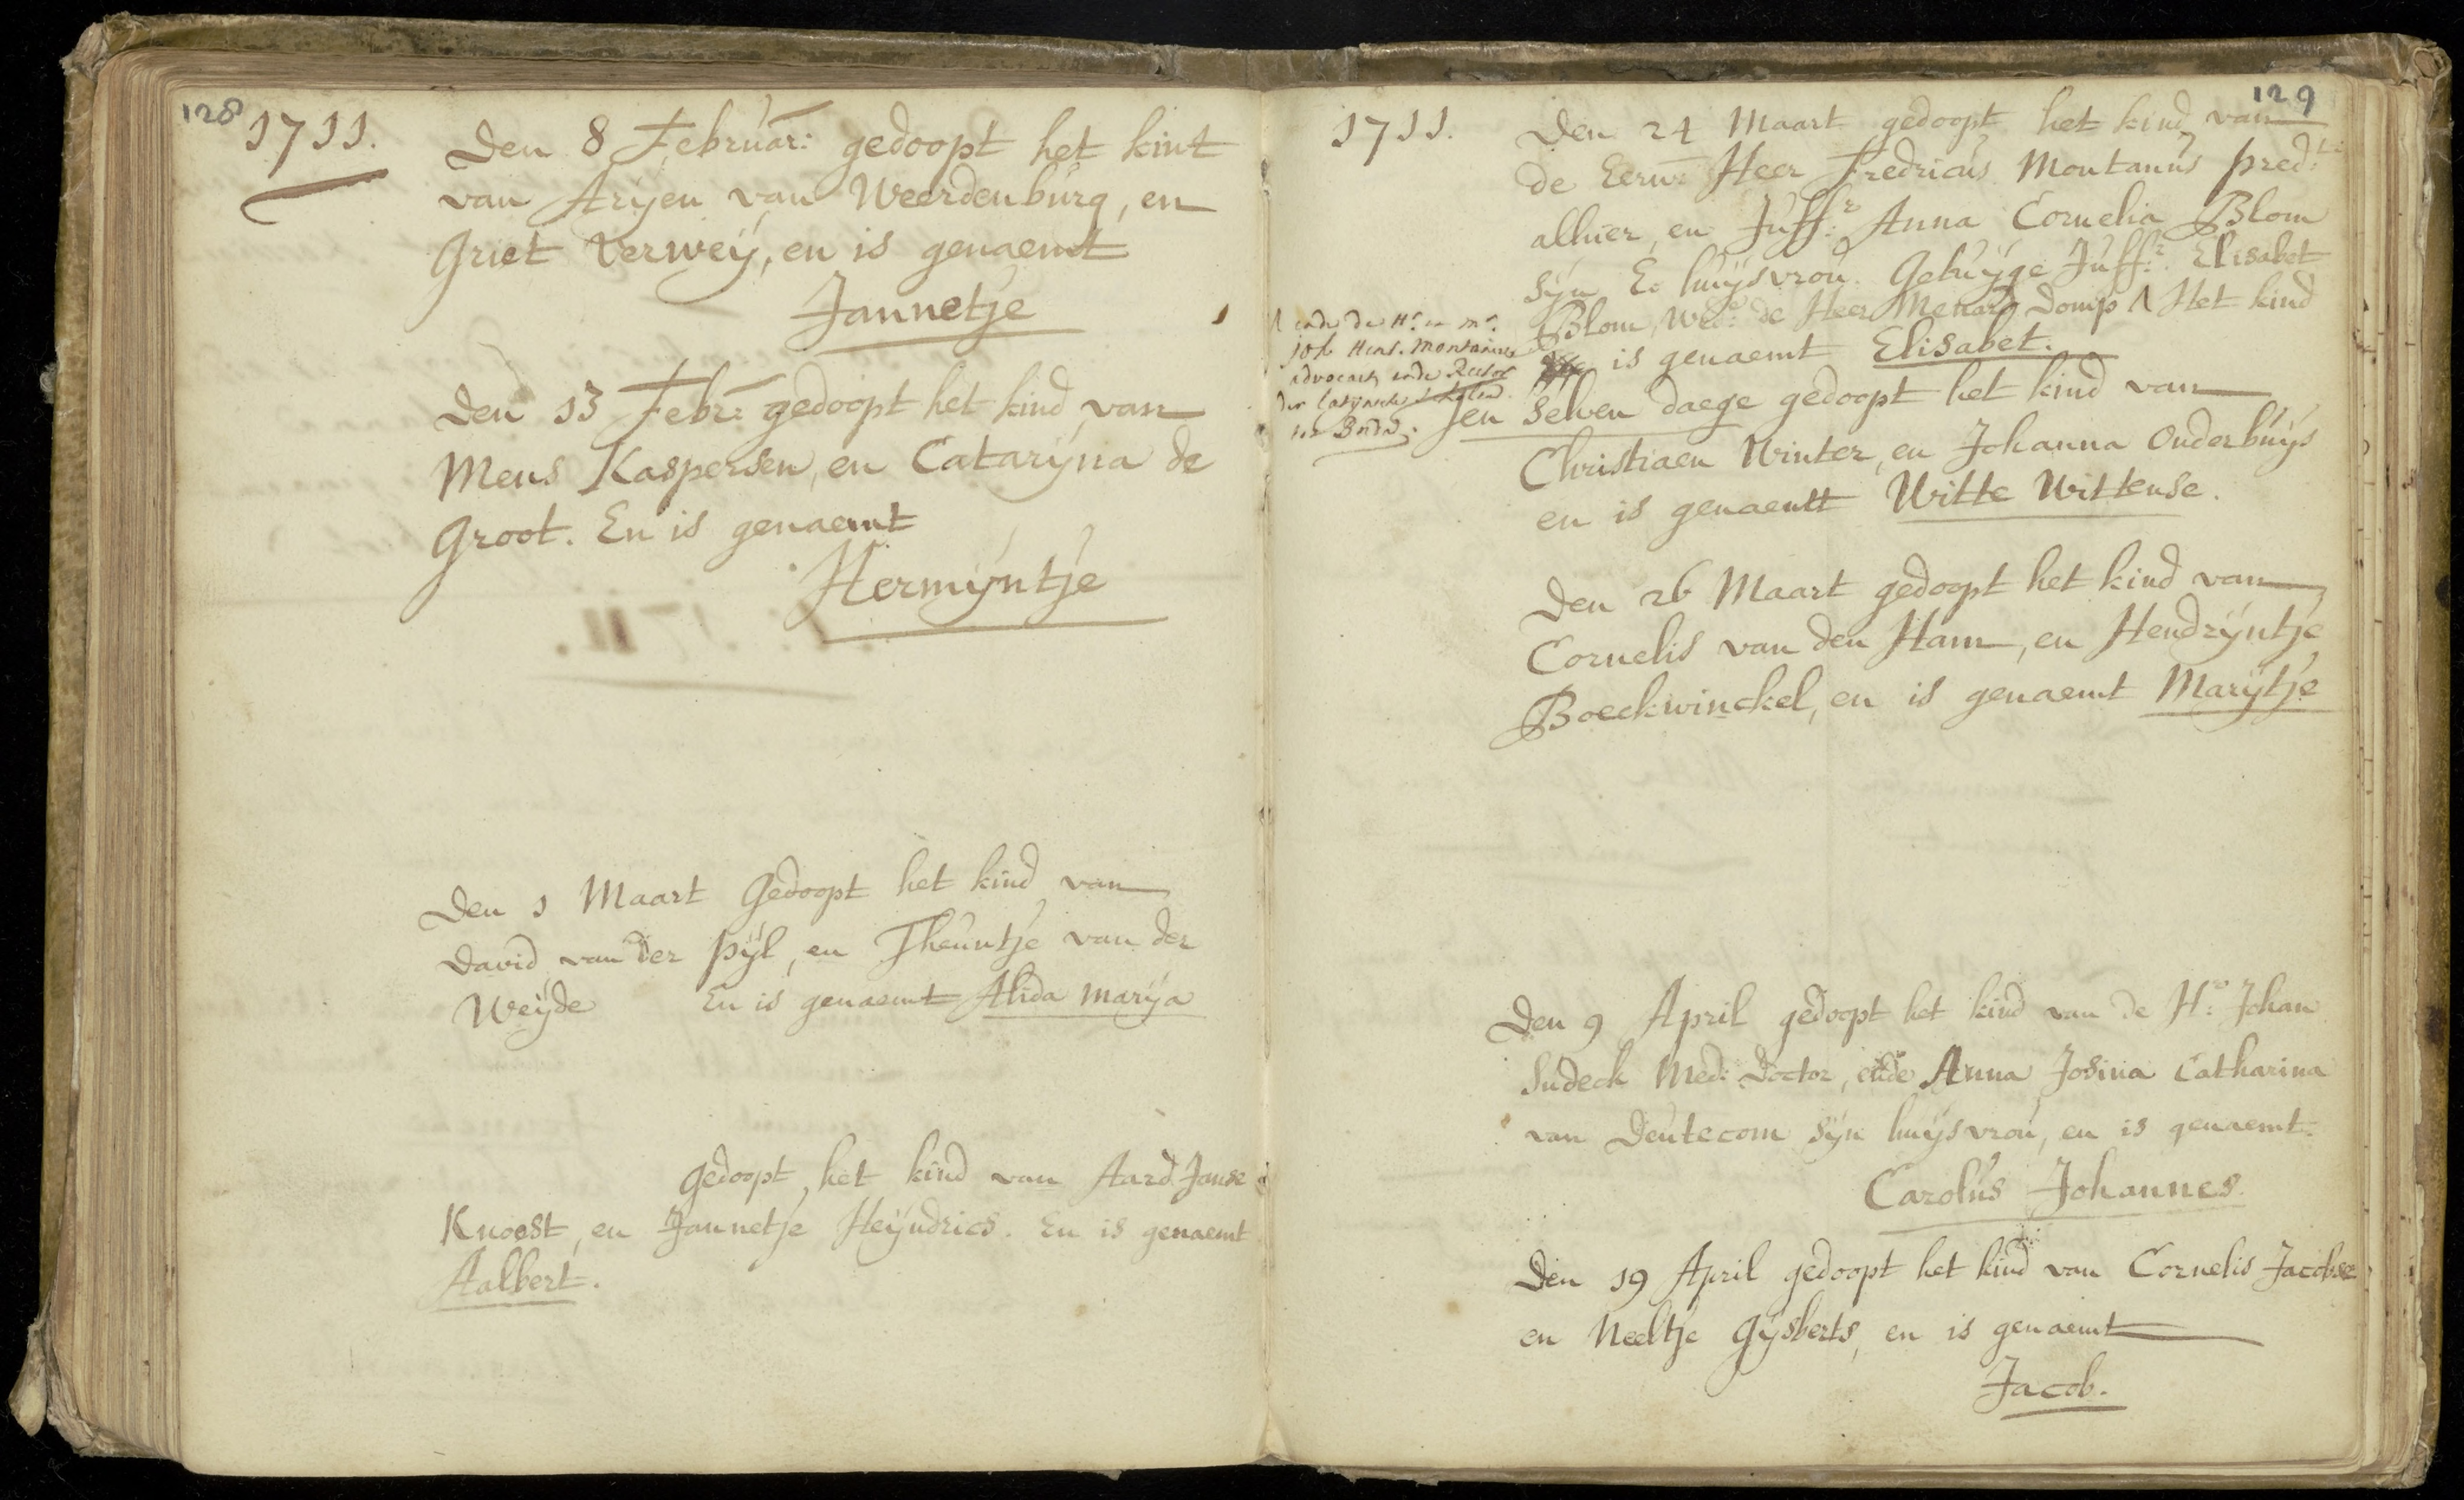 128
1711.
Den 8 Februar: gedoopt het kint
van Arijen van Weerdenburg, en
Griet Verweij, en is genaemt
Jannetje
Den 13 Febr: gedoopt het kind van
Mens Kaspersen, en Catarijna de
Groot. En is genaemt
Hermijntje
Den 1 Maart Gedoopt het kind van
David van der Pijl, en Theuntje van der
Weijde En is genaemt Alida Marija
gedoopt het kind van Aard Janse
Knoest, en Jannetje Heijndrics. En is genaemt
Aalbert.
129
1711.
Den 24 Maart gedoopt het kind van
de Eerw: Heer Fredricus Montanus pred:
alhier, en Juffr: Anna Cornelia Blom
sijn E. huijsvrou. Getuijge Juffr: Elisabet
Blom, Wed: de Heer Menard Domp Λ Het kind
is genaemt Elisabet.
Λ ende de Hr. en Mr.
Joh Henr. Montanus
advocaet, ende Rector
der Latijnsche
Den selven daege gedoopt het kind van
Christiaen Winter, en Johanna Onderbuijs
en is genaemt Witte Wittense.
Den 26 Maart gedoopt het kind van
Cornelis van den Ham, en Hendrijntje
Boeckwinckel, en is genaemt Marijtje
Den 9 April gedoopt het kind van de Hr: Johan
Sudeck Med: Doctor, ende Anna Josina Catharina
van Deutecom sijn huijsvrou, en is genaemt.
Carolus Johannes
Den 19 April gedoopt het kind van Cornelis Jacobse
en Neeltje Gijsberts, en is genaemt
Jacob.